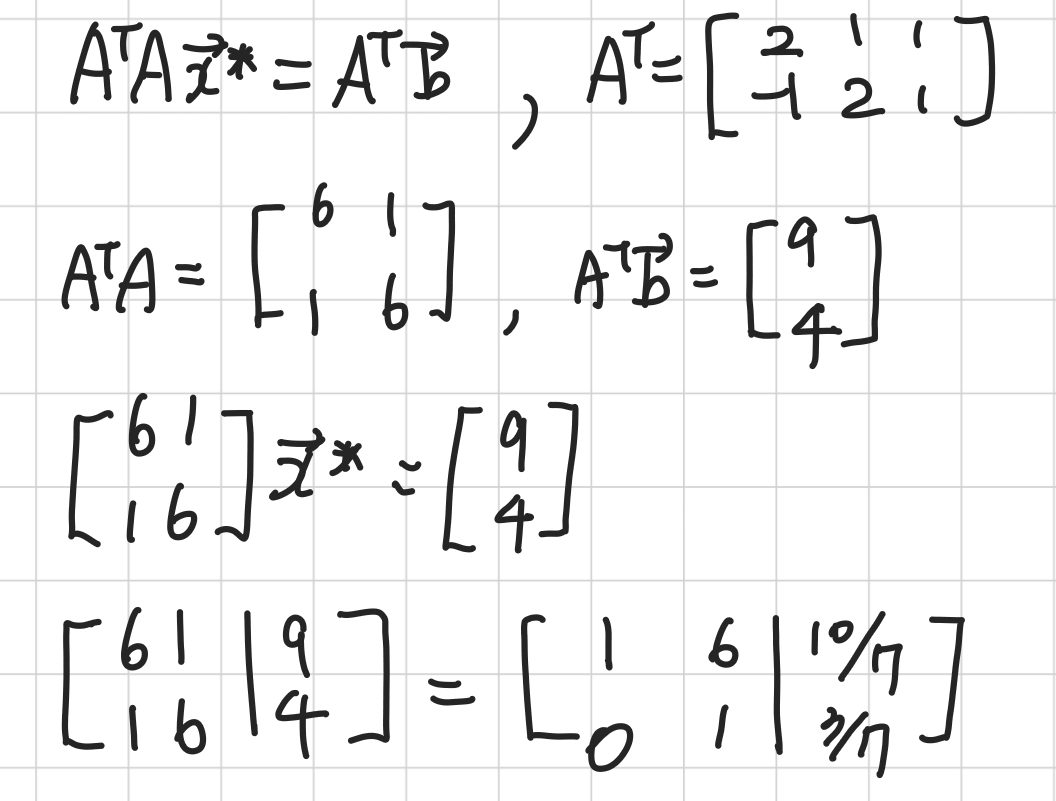 AᵀA x⃗* = Aᵀb⃗ , Aᵀ = [2 1 1; -1 2 1]
AᵀA = [6 1; 1 6] , Aᵀb⃗ = [9; 4]
[6 1; 1 6] x⃗* = [9; 4]
[6 1 | 9; 1 6 | 4] = [1 6 | 10/7; 0 1 | 3/7]